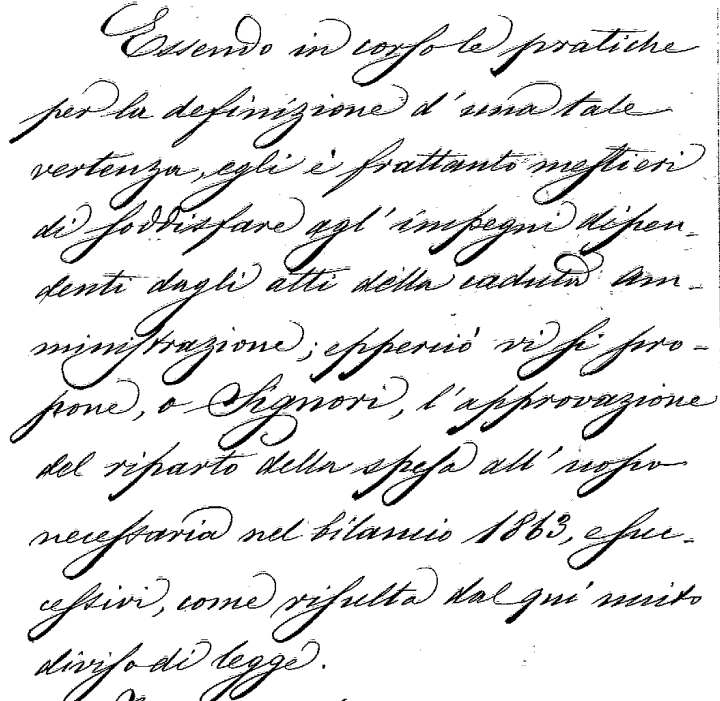 Essendo in corso le pratiche
per la definizione d'una tale
vertenza, egli è frattanto mestieri
di soddisfare agl'impegni dipen-
denti dagli atti della caduta Am-
ministrazione; epperciò vi si pro-
pone, o Signori, l'approvazione
del riparto della spesa all'uopo
necessaria nel bilancio 1863, e suc-
cessivi, come risulta dal qui unito
diviso di legge.